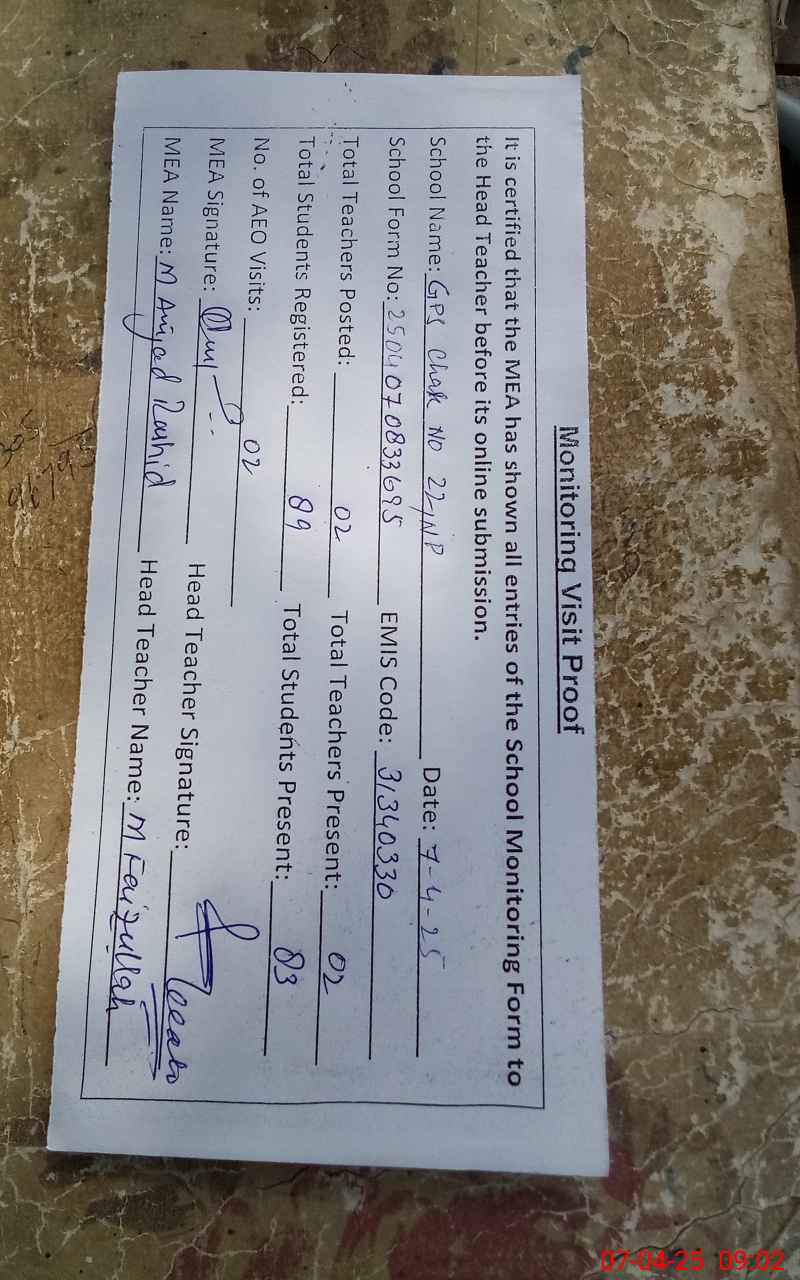 Monitoring Visit Proof
It is certified that the MEA has shown all entries of the School Monitoring Form to
the Head Teacher before its online submission.
School Name: GPS Chak NO 22/NP Date: 7-4-25
School Form No: 2504070833695 EMIS Code: 31340330
Total Teachers Posted: 02 Total Teachers Present: 02
Total Students Registered: 89 Total Students Present: 83
No. of AEO Visits: 02
MEA Signature: Head Teacher Signature:
MEA Name: M Amjad Rashid Head Teacher Name: M Faizullah
07-04-25 09:02